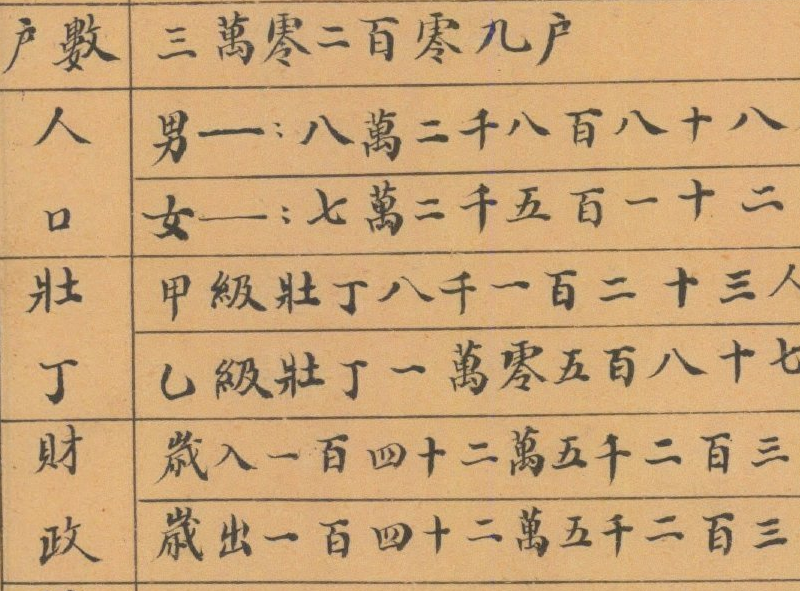 户數 三萬零二百零九户
人口 男——：八萬二千八百八十八
女——：七萬二千五百一十二
壯丁 甲級壯丁八千一百二十三人
乙級壯丁一萬零五百八十七
財政 歲入一百四十二萬五千二百三
歲出一百四十二萬五千二百三